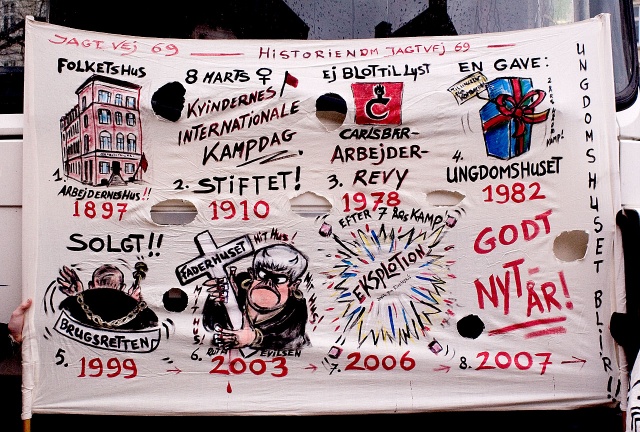 JAGTVEJ 69 — HISTORIEN OM JAGTVEJ 69 —
FOLKETS HUS
1.
ARBEJDERNES HUS!!
1897
8 MARTS ♀
KVINDERNES
INTERNATIONALE
KAMPDAG
2. STIFTET!
1910
EJ BLOT TIL LYST
CARLSBÆR-
ARBEJDER-
3. REVY
1978
EN GAVE:
4.
UNGDOMSHUSET
1982
SOLGT!!
BRUGSRETTEN
5. 1999
FADERHUSET
HIT HUS!
6. RUTH EVILSEN
2003
EFTER 7 ÅRS KAMP
EKSPLOTION
7. 2006
GODT
NYT-
ÅR!
8. 2007
UNGDOMSHUSET BLI'R!!